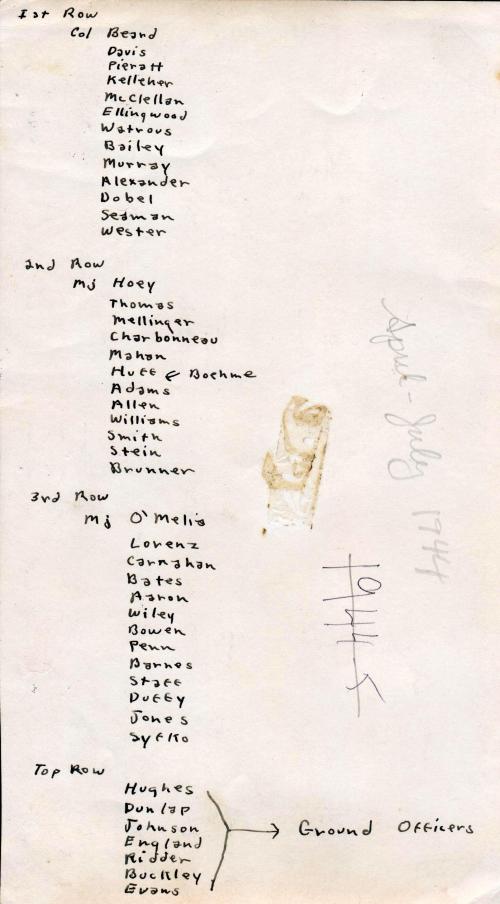 1st Row
Col Beard
Davis
Pieratt
Kelleher
McClellan
Ellingwood
Watrous
Bailey
Murray
Alexander
Dobel
Seaman
Wester
2nd Row
Mj Hoey
Thomas
Mellinger
Charbonneau
Mahan
Huff & Boehme
Adams
Allen
Williams
Smith
Stein
Brunner
3rd Row
Mj O'Melia
Lorenz
Carnahan
Bates
Aaron
Wiley
Bowen
Penn
Barnes
Staff
Duffy
Jones
Syfko
Top Row
Hughes
Dunlap
Johnson
England
Ridder
Buckley
Evans
Ground Officers
April - July 1944
1944-5